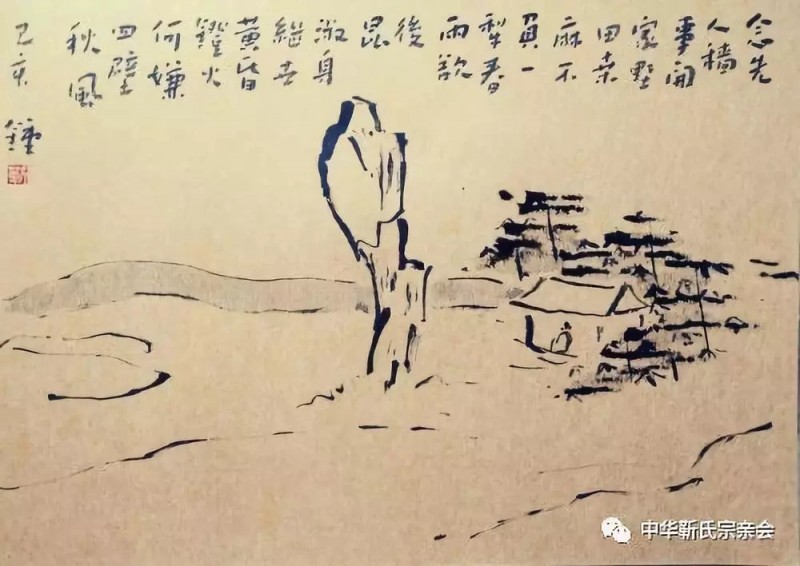 念先
人穑
事開
家墅
田桑
麻不
負一
犁春
雨欲
後
昆
淑身
継世
黄昏
鐙火
何嫌
四壁
秋風
己亥 鍾
靳
中华靳氏宗亲会